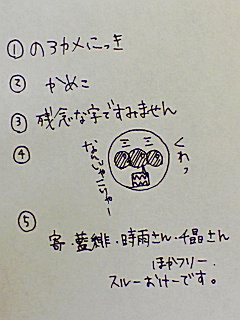 ① のろカメにっき
② かめこ
③ 残念な字ですみません
④
くわっ
なんじゃこりゃー
⑤
寄・藍緋・時雨さん・千晶さん
ほかフリー.
スルーおけーです。